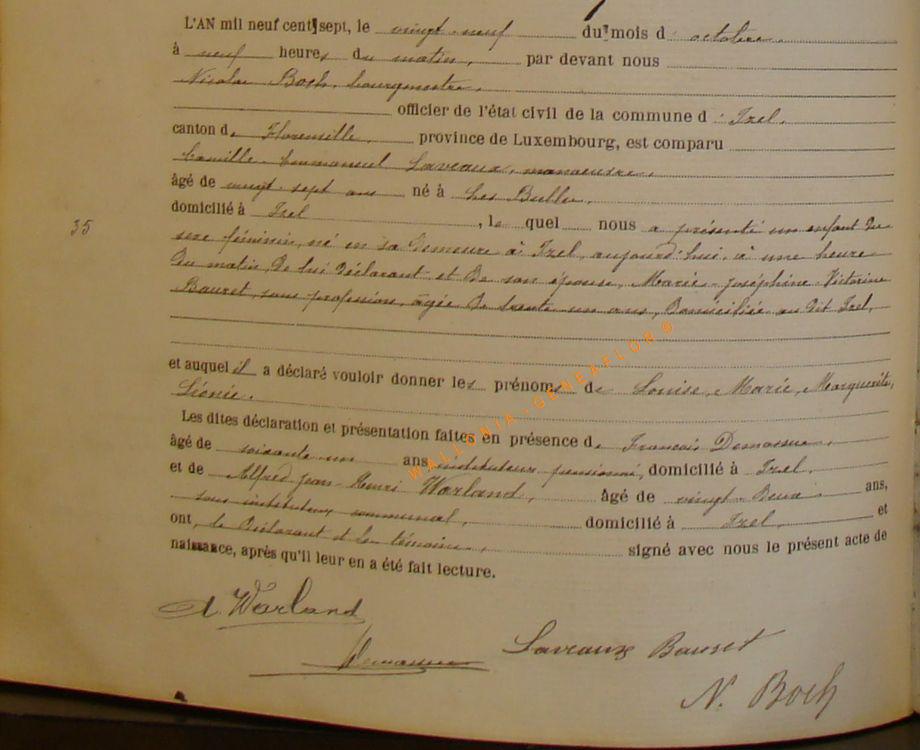 L'AN mil neuf cent sept, le vingt-neuf du mois d'octobre,
à neuf heures du matin, par devant nous
Nicolas Boch, bourgmestre,
officier de l'état civil de la commune d'Izel,
canton de Florenville, province de Luxembourg, est comparu
Camille Emmanuel Laveaux, manoeuvre,
âgé de vingt-sept ans né à Les Bulles,
domicilié à Izel, lequel nous a présenté un enfant du
35
sexe féminin, né en sa demeure à Izel, aujourd'hui, à une heure
du matin, de lui déclarant et de son épouse, Marie-Joséphine-Victorine
Bauret, sans profession, âgée de trente un ans, domiciliée au dit Izel,
et auquel il a déclaré vouloir donner les prénoms de Louise, Marie, Marguerite,
Léonie.
Les dites déclaration et présentation faites en présence de François
âgé de soixante un ans instituteur pensionné, domicilié à Izel,
et de Alfred Jean Henri Warland, âgé de vingt-deux ans,
sous instituteur communal, domicilié à Izel, et
ont, le déclarant et les témoins, signé avec nous le présent acte de
naissance, après qu'il leur en a été fait lecture.
WALLONIA-GENEXFLOR®
A. Warland
Laveaux Bauret
N. Boch